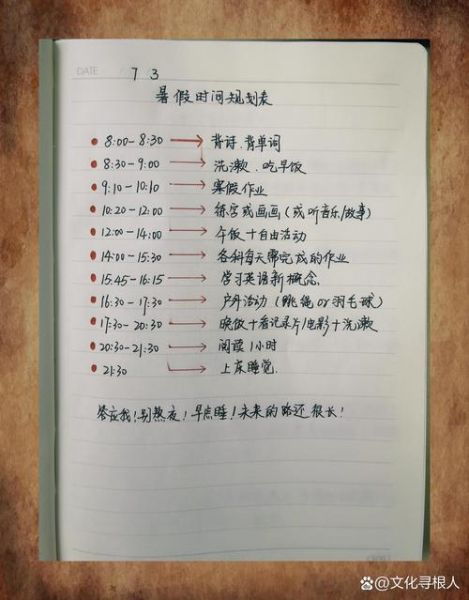 DATE 7 3
暑假时间规划表
8:00-8:30 → 背诗.背单词
8:30-9:00 → 洗漱.吃早饭
9:10-10:10 → 寒假作业
10:20-12:00 → 练字或画画(或听音乐/故事)
12:00-14:00 → 午饭+自由活动
14:00-15:30 → 各科每天需完成的作业
15.45-16:15 → 学习英语新概念
16:30-17:30 → 户外活动(跳绳or羽毛球)
17:30-20:30 → 晚饭+看记录片/电影+洗漱
20:30-21:30 → 阅读1小时
21:30 → 上床睡觉.
答应我!别熬夜!早点睡!未来的路还很长!
百度@文化寻根人